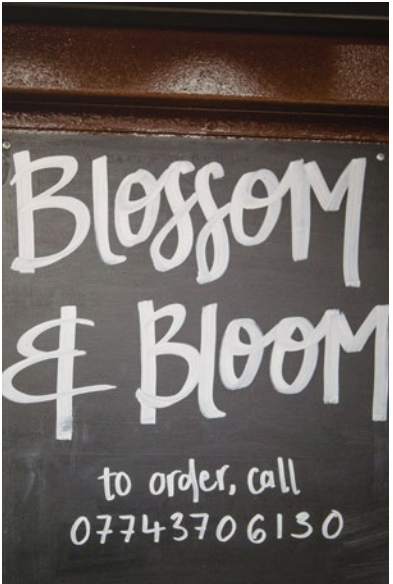 BlossoM
& BlooM
to order, call
07743706130